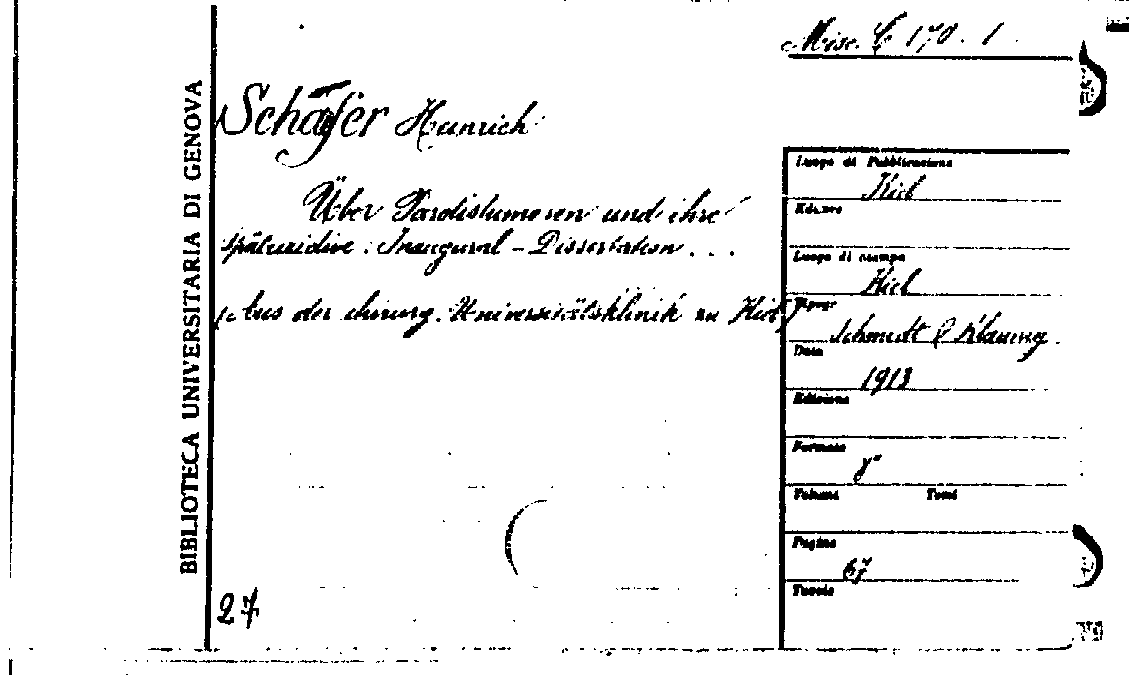 Misc. C 170. 1.
BIBLIOTECA UNIVERSITARIA DI GENOVA
Schäfer Heinrich
Über Parotistumoren und ihre
Spätrezidive. Inaugural - Dissertation ...
(Aus der chirurg. Universitätsklinik zu Kiel)
Luogo di Pubblicazione
Kiel
Editore
Luogo di stampa
Kiel
Tipogr.
Schmidt & Klaunig
Data
1913
Edizione
Formato
8°
Volumi Tomi
Pagine
67
Tavole
27